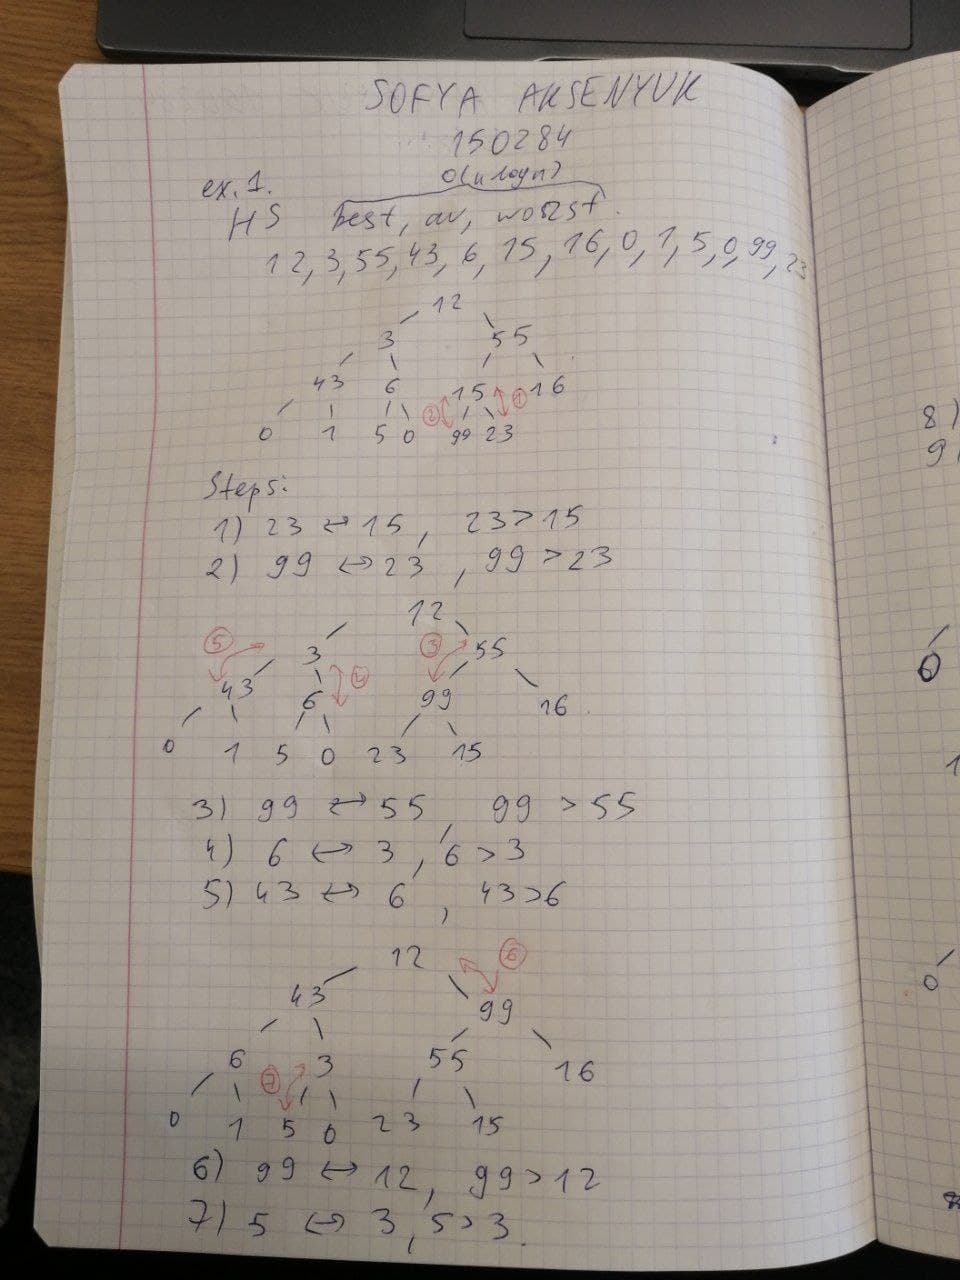 SOFYA AKSENYUK
150284
O(n logn)
ex.1.
HS best, av, worst.
12, 3, 55, 43, 6, 15, 16, 0, 1, 5, 0, 99, 23
12
3 55
43 6 15 16
2 1
0 1 5 0 99 23
Steps:
1) 23 ↔ 15, 23 > 15
2) 99 ↔ 23, 99 > 23
12
5 3 3 55
43 6 4 99 16
0 1 5 0 23 15
3) 99 ↔ 55, 99 > 55
4) 6 ↔ 3, 6 > 3
5) 43 ↔ 6, 43 > 6
12 6
43 99
6 3 55 16
7
0 1 5 0 23 15
6) 99 ↔ 12, 99 > 12
7) 5 ↔ 3, 5 > 3.
8)
9)
0
1
0